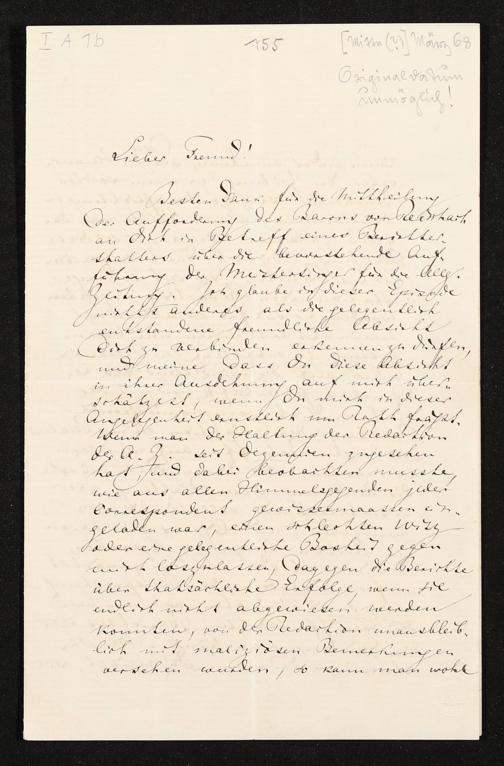 I A 7b
155
[Mitte (?)] März 68
Originaldatum
unmöglich!
Lieber Freund!
Besten Dank für die Mittheilung
der Aufforderung des Barons von
an Dich in Betreff eines Berichter-
statters über die bevorstehende Auf-
führung der Meistersinger für die Allg.
Zeitung. Ich glaube in dieser Episode
nichts anderes als die gelegentlich
entstandene freundliche Absicht
Dich zu verbinden erkennen zu dürfen,
und meine, dass Du diese Absicht
in ihrer Ausdehnung auf mich über-
schätzest, wenn Du mich in dieser
Angelegenheit ernstlich um Rath frägst.
Wenn man der Haltung der Redaction
der A. Z. seit Dezennien zugesehen
hat und dabei beobachten musste,
wie aus allen Himmelsgegenden jeder
Correspondent gewissermaassen ein-
geladen war, einen schlechten Witz
oder eine gelegentliche Bosheit gegen
mich loszulassen, dagegen die Berichte
über thatsächliche Erfolge, wenn sie
endlich nicht abgewiesen werden
konnten, von der Redaction unausbleib-
lich mit maliziösen Bemerkungen
versehen wurden, so kann man wohl